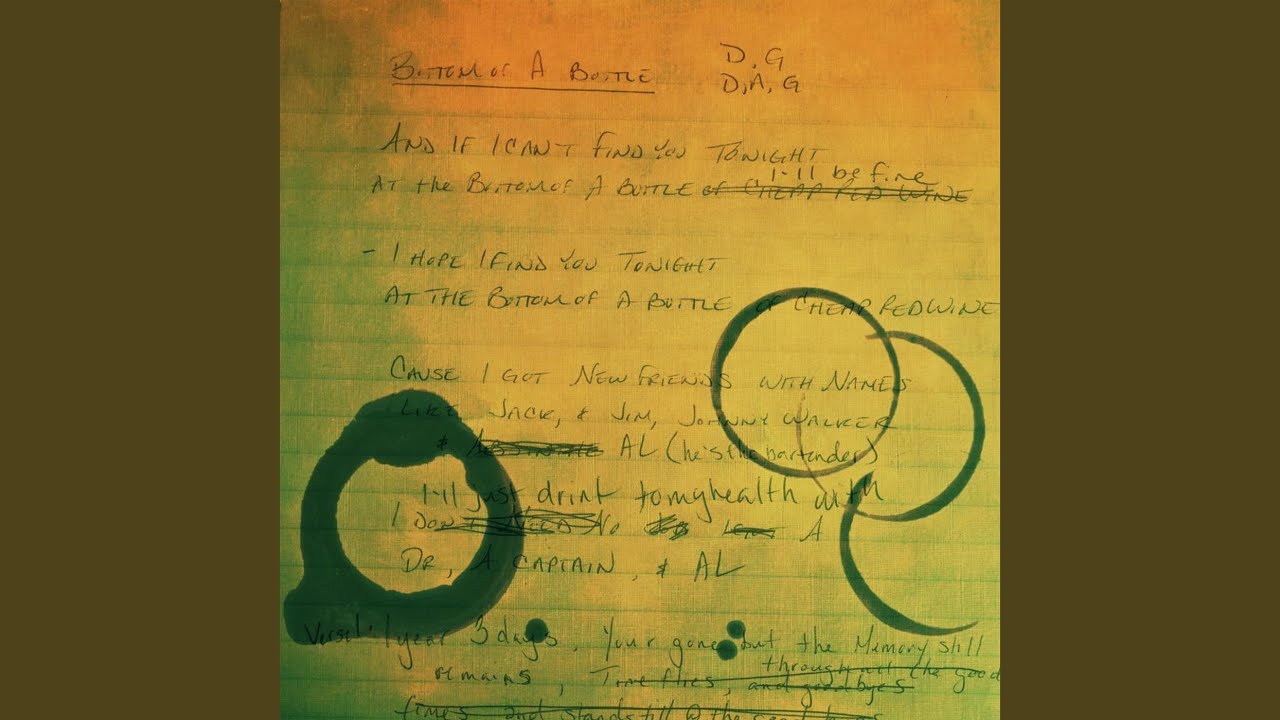 BOTTOM OF A BOTTLE
D, G
D, A, G
AND IF I CAN'T FIND YOU TONIGHT
I'll be fine
AT the BOTTOM OF A BOTTLE OF CHEAP RED WINE
- I HOPE I FIND YOU TONIGHT
AT THE BOTTOM OF A BOTTLE OF CHEAP RED WINE
CAUSE I GOT NEW FRIENDS WITH NAMES
LIKE JACK, & JIM, JOHNNY WALKER
& AL (he's the bartender)
I'll just drink to my health with
I DON'T NEED NO A
DR, A CAPTAIN, & AL
Verse 1: 1 year 3 days, Your gone but the Memory still
through all the good
remains, Time flies, and goodbyes
times and stand still @ the